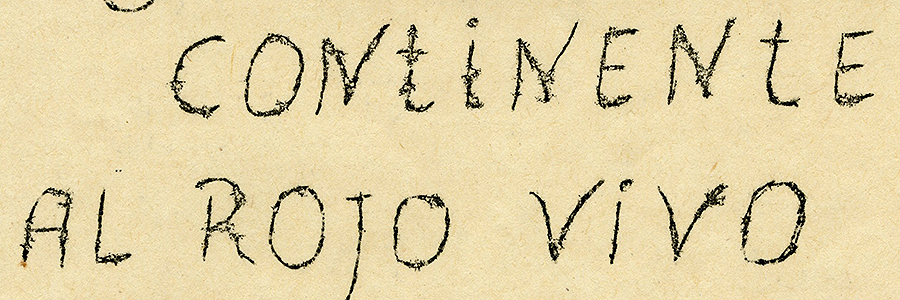 CONtiNENtE
AL ROJO ViVO